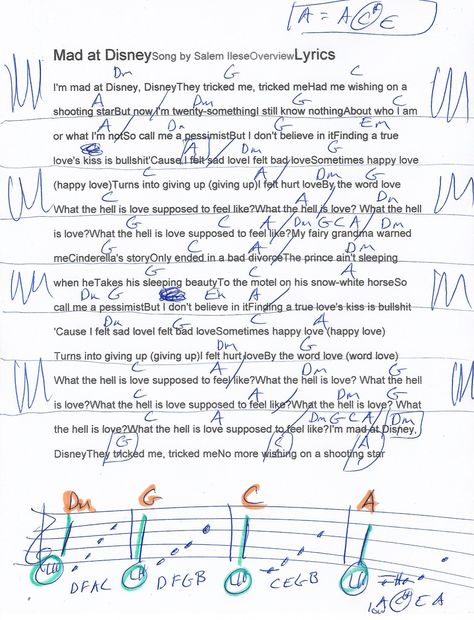 A = A C# E
Mad at DisneySong by Salem IleseOverviewLyrics
Dm G C
I'm mad at Disney, DisneyThey tricked me, tricked meHad me wishing on a
A Dm G C
shooting starBut now I'm twenty-somethingI still know nothingAbout who I am
A Dm G Em
or what I'm notSo call me a pessimistBut I don't believe in itFinding a true
A Dm G
love's kiss is bullshit'Cause I felt sad loveI felt bad loveSometimes happy love
C A Dm G
(happy love)Turns into giving up (giving up)I felt hurt loveBy the word love
C A Dm G
What the hell is love supposed to feel like?What the hell is love? What the hell
C A Dm G C A Dm
is love?What the hell is love supposed to feel like?My fairy grandma warned
G C A Dm
meCinderella's storyOnly ended in a bad divorceThe prince ain't sleeping
G C A
when heTakes his sleeping beautyTo the motel on his snow-white horseSo
Dm G Em A
call me a pessimistBut I don't believe in itFinding a true love's kiss is bullshit
Dm G C A
'Cause I felt sad loveI felt bad loveSometimes happy love (happy love)
Dm G
Turns into giving up (giving up)I felt hurt loveBy the word love (word love)
C A Dm G
What the hell is love supposed to feel like?What the hell is love? What the hell
C A Dm G
is love?What the hell is love supposed to feel like?What the hell is love? What
C A Dm G C A Dm
the hell is love?What the hell is love supposed to feel like?I'm mad at Disney,
G C A
DisneyThey tricked me, tricked meNo more wishing on a shooting star
Dm G C A
LH DFAC LH DFGB LH CEGB LH A C# E A
low